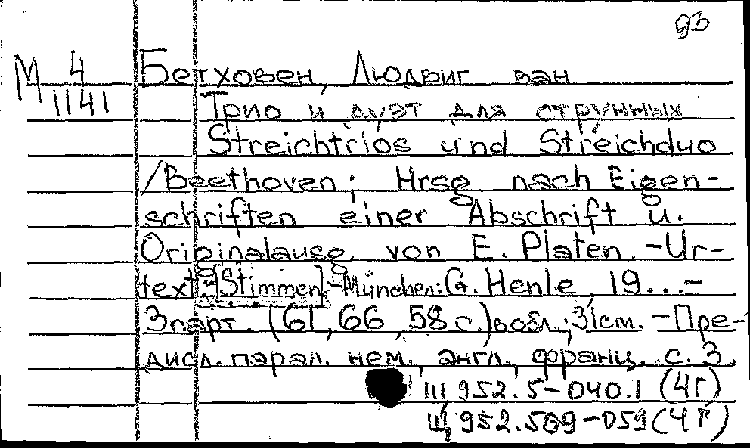 93
М 4
1141
Бетховен, Людвиг ван
Трио и дуэт для струнных
Streichtrios und Streichduo
/Beethoven; Hrsg nach Eigen-
schriften einer Abschrift u.
Originalausg. von E. Platen. -Ur-
text -[Stimmen] -München: G. Henle, 19...-
3 парт. (61, 66, 58 с.) в обл.; 31 см. -Пре-
дисл. парал. нем., англ., франц. с. 3.
Ш 952.5-040.1 (4Г)
Щ 952.509-059 (4Г)